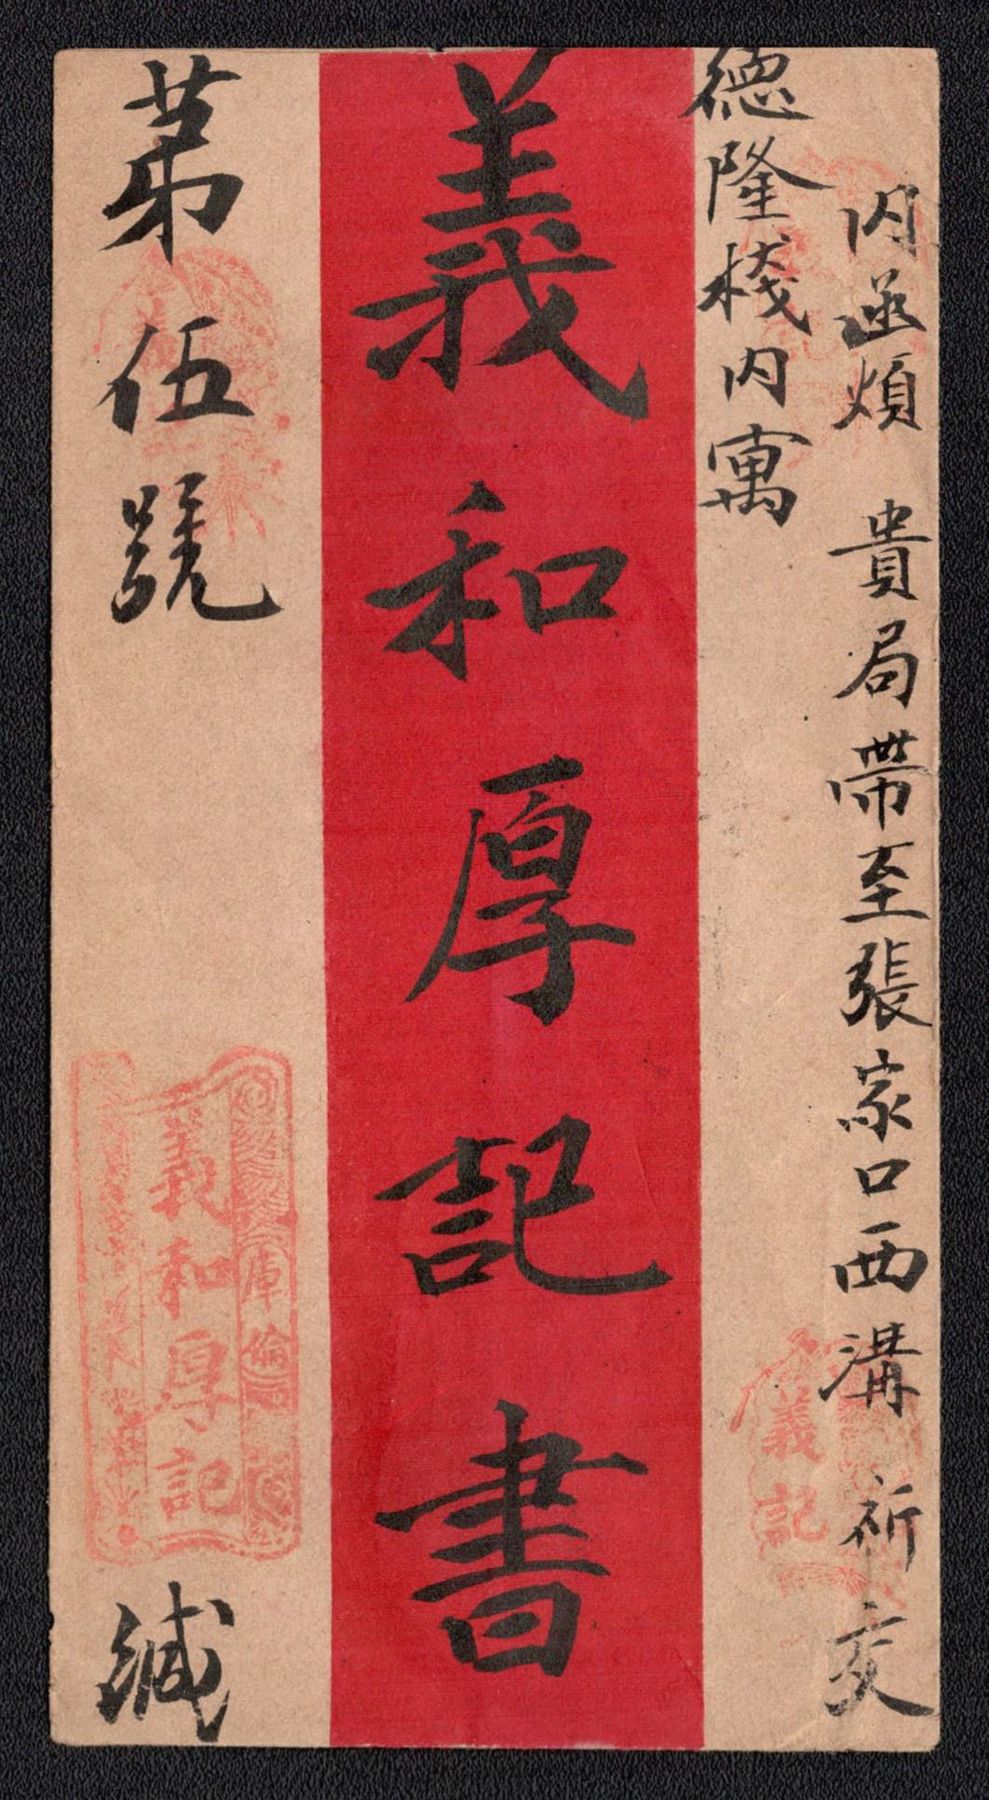 內函煩 貴局帶至張家口西溝 祈交
德隆棧內寓
義和厚記書
第伍號
緘
庫倫
義和厚記
義記